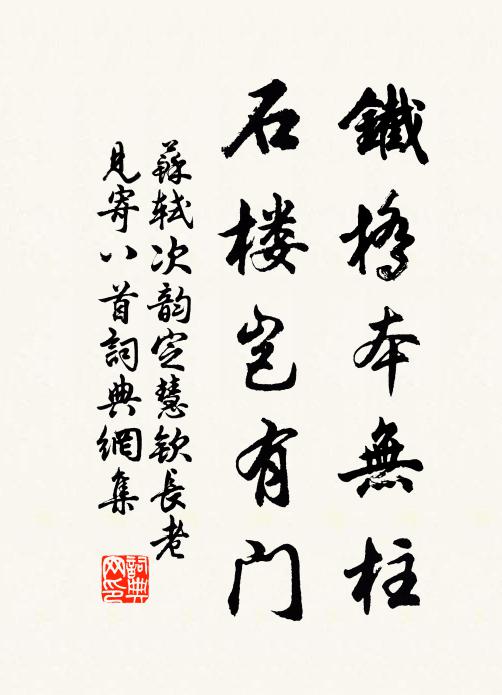 鐵橋本無柱
石楼豈有门
蘇軾次韵定慧欽長老
見寄八首詞典網集
詞典网印